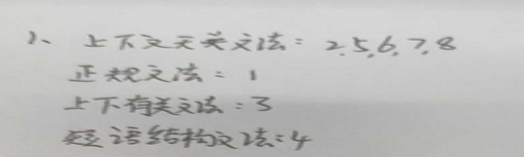 1、上下文无关文法：2,5,6,7,8
正规文法：1
上下有关文法：3
短语结构文法：4